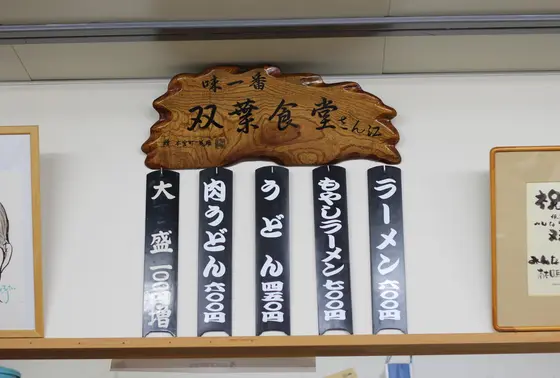 味一番
双葉食堂さん江
ラーメン 六〇〇円
もやしラーメン 七〇〇円
うどん 四五〇円
肉うどん 六〇〇円
大盛 一〇〇円増
祝